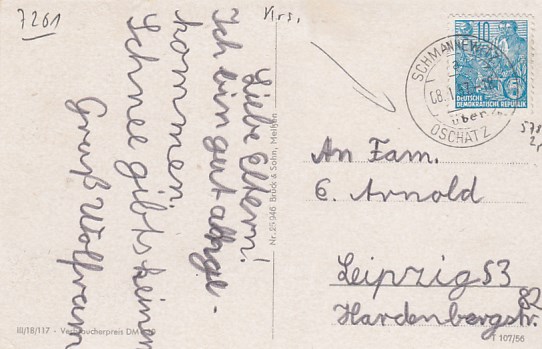 7261
Kirs.
Liebe Eltern!
Ich bin gut abge-
kommen.
Schnee gibts keinen
Gruß Wolfram
Nr. 25946 Brück & Sohn, Meißen
III/18/117 - Verbraucherpreis DM
10
DEUTSCHE
DEMOKRATISCHE REPUBLIK
SCHMANNEWITZ
über
OSCHATZ
An Fam.
G. Arnold
Leipzig S3
Hardenbergstr.
82
T 107/56